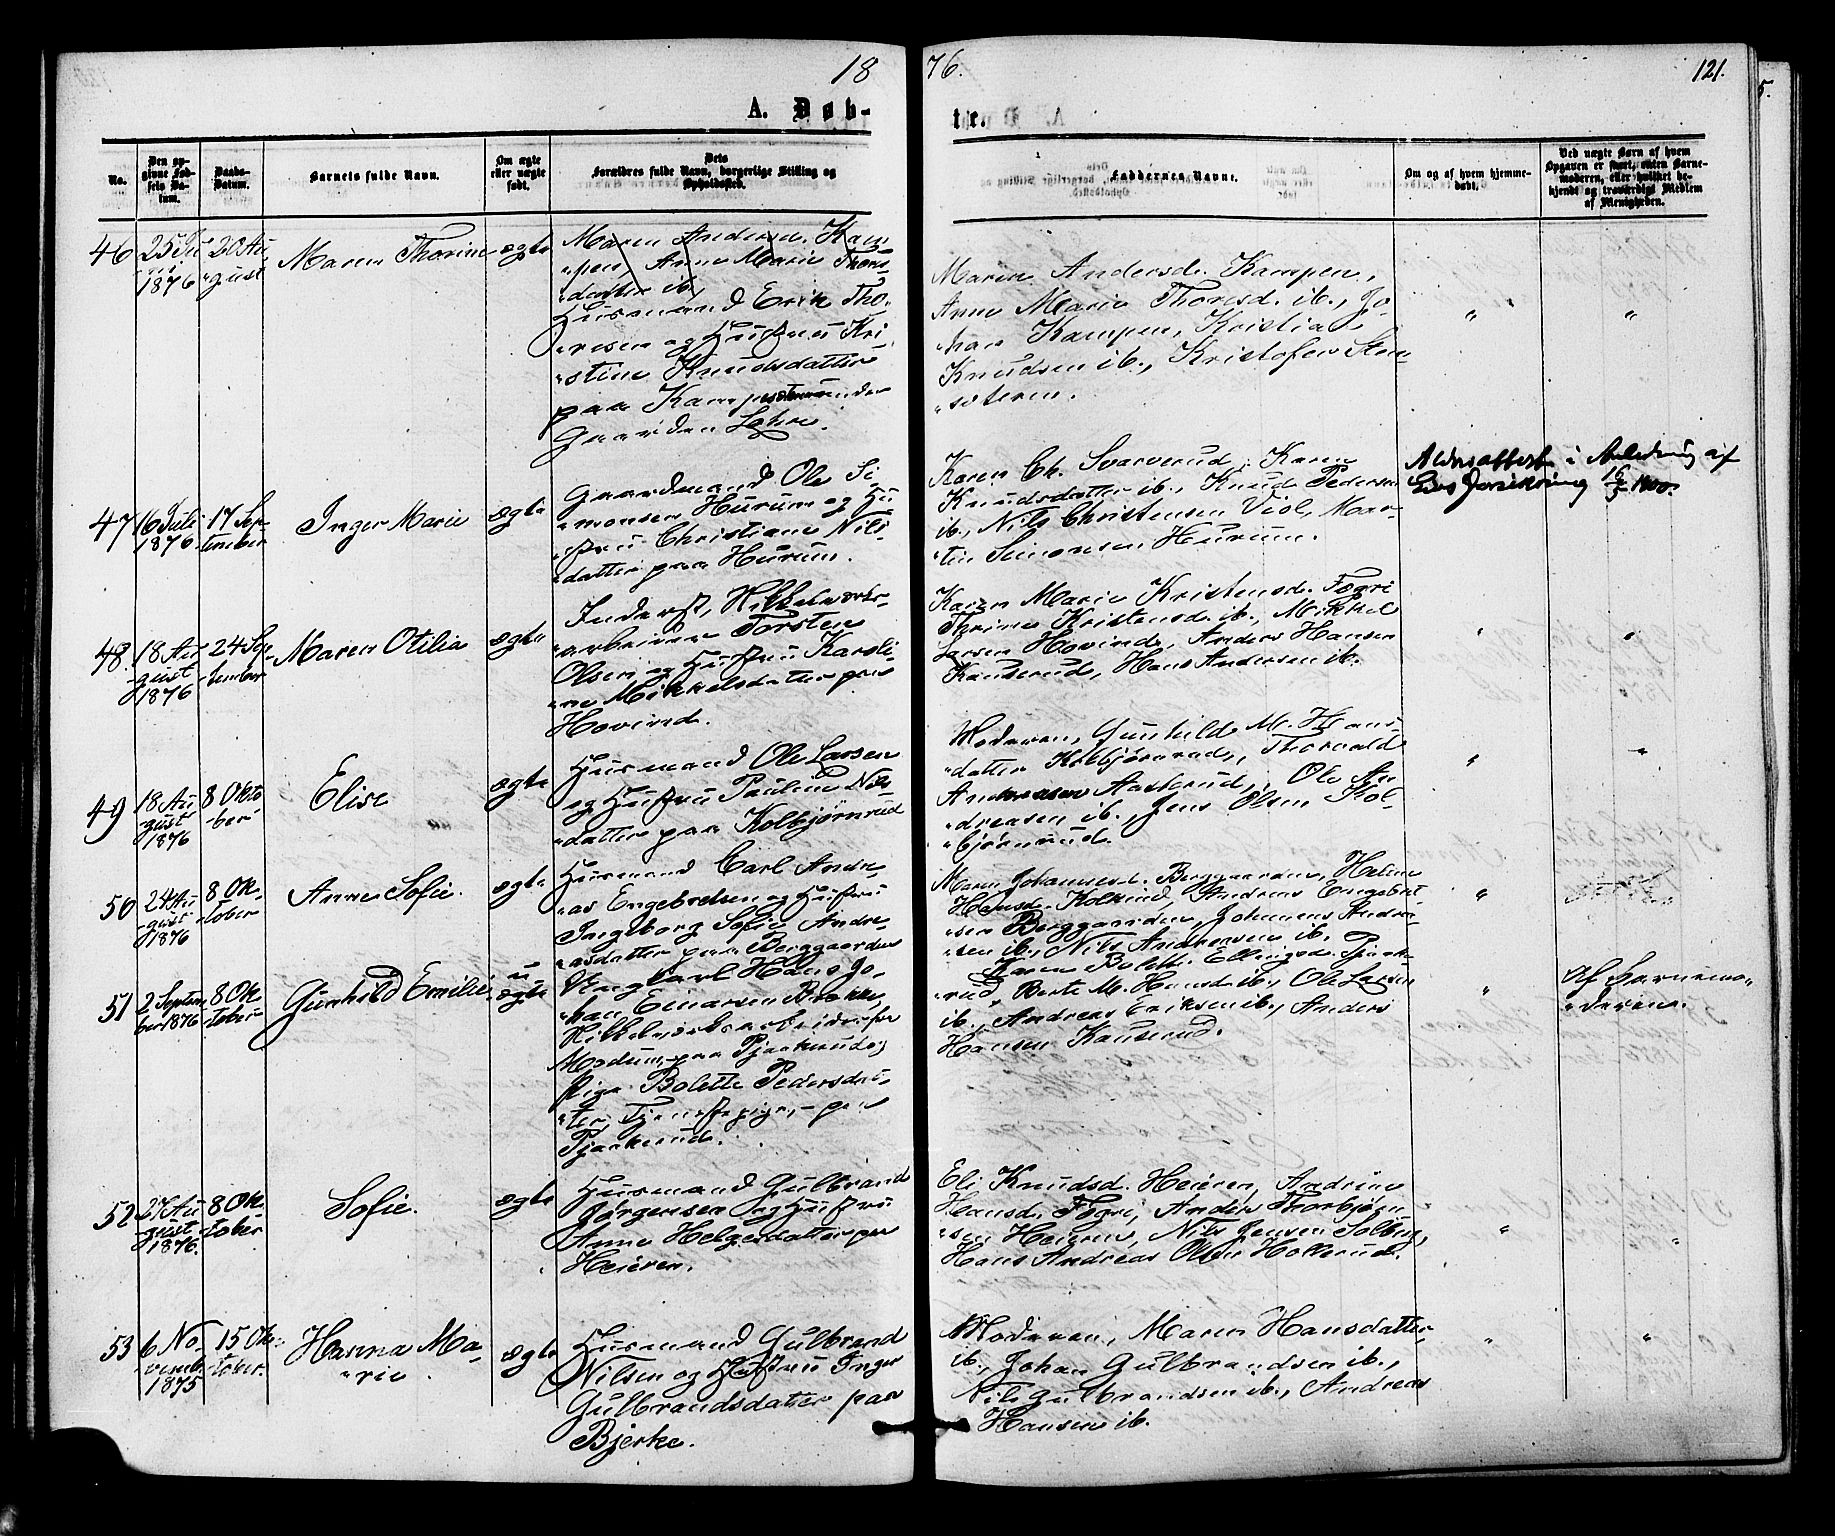 18
76.
121.
A. Døb-
te.
No.
Den op-
givne Fød-
sels Da-
tum.
Daabs-
Datum.
Barnets fulde Navn.
Om ægte
eller uægte
født.
Dets
Forældres fulde Navn, borgerlige Stilling og
Opholdssted.
Faddernes Navne.
Om og af hvem hjemme-
døbt.
Ved uægte Børn af hvem
Opgaven er skeet, enten Barne-
moderen, eller hvilket be-
kjendt og troværdigt Medlem
af Menigheden.
46
25 Ju
1876
20 Au
gust
Maren Thorine
ægte
Maren Andersd. Kam
pen, Anne Marie Thors-
datter ib,
Husmand Erik Tho-
resen og Hustru Kri-
stine Knudsdatter
paa Kampen under
Gaarden Lohre.
Maren Andersd. Kampen,
Anne Marie Thoresd. ib., Jo-
han Kampen, Kristian
Knudsen ib., Kristofer Sten-
sæteren.
"
"
47
16 Juli
1876
17 Sep-
tember
Inger Marie
ægte
Gaardmand Ole Si-
monsen Hurum og Hu
stru Christiane Nils-
datter paa Hurum.
Karen Ch. Svarverud, Karen
Knudsdatter ib., Knud Pedersen
ib., Nils Christensen Viol, Mar-
tin Simonsen Hurum.
Aldersattest i Anledning af
Livsforsikring 16/5 1900.
48.
18 Au
gust
1876
24 Sep-
tember
Maren Otilia
ægte
Inderst, Nikkelværks-
arbeider Torsten
Olsen og Hustru Karoli-
ne Mikkelsdatter paa
Hovind.
Karen Marie Kristensd. Fogri
Thrine Kristensd. ib., Mikkel
Larsen Hovind, Anders Hansen
Kauserud, Hans Andersen ib.
"
"
49
18 Au
gust
1876
8 Okto
ber
Elise
ægte
Husmand Ole Larsen
og Hustru Pauline Nils-
datter paa Kolbjørnrud
Moderen, Gunhilde M. Hans-
datter Kolbjørnrud, Thorvald
Andreasen Aasterud, Ole An
dreasen ib., Jens Olsen Kol-
bjørnrud.
"
"
50
24 Au
gust
1876
8 Ok-
tober
Anne Sofie.
ægte
Husmand Carl Andre-
as Engebretsen og Hustru
Ingeborg Sofie Andre
asdatter paa Berggaarden
Maren Johannesd. Berggaarden, Heline
Hansd. Kolsrud, Andreas Engebret-
sen Berggaarden, Johannes Andrea
sen ib., Nils Andreasen ib.
"
51
2 Septem
ber 1876
8 Ok
tober
Gunhild Emilie.
u
ægte
Ungkarl Hans Jo-
han Emarsen Brække,
Nikkelværksarbeider fra
Modum, paa Pjaakerud og
Pige Bolette Pedersdat-
ter, Tjenestepige, paa
Pjaakerud.
Karen Bolette Ellingsd. Pjaake-
rud, Berte M. Hansd. ib., Ole Larsen
ib., Andreas Eriksen ib., Anders
Hansen Kauserud.
"
Af Barnemo-
deren.
52
27 Au
gust
1876.
8 Ok-
tober
Sofie.
ægte
Husmand Gulbrand
Jørgensen og Hustru
Anne Helgesdatter paa
Heieren.
Eli Knudsd. Heieren, Andrine
Hansd. Fogri, Anders Thorbjørn-
sen Heieren, Nils Jensen Solberg,
Hans Andreas Olsen Hokerud.
"
"
53
6 No-
vemb.
1875
15 Ok-
tober.
Hanna Ma-
rie
ægte
Husmand Gulbrand
Nilsen og Hustru Inger
Gulbrandsdatter paa
Bjerke.
Moderen, Maren Hansdatter
ib., Johan Gulbrandsen ib.,
Nils Gulbrandsen ib., Andreas
Hansen ib.
"
"